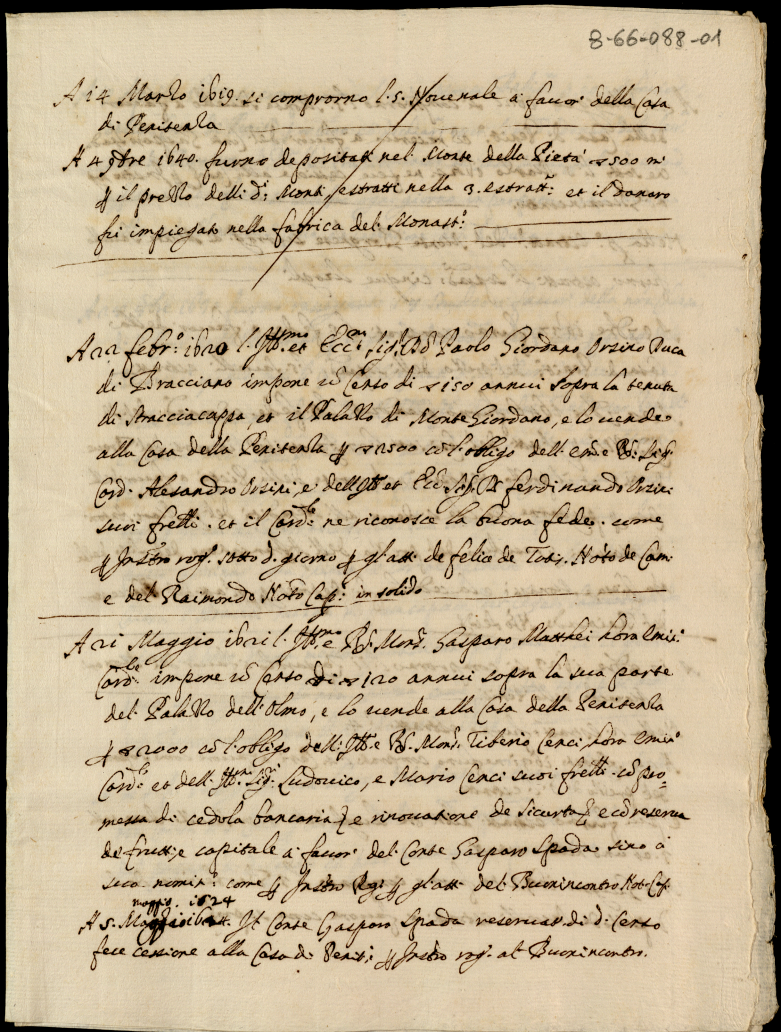 8-66-088-01
A 14 Marzo 1619. si comprorno l. 5. Novennale a favor della Casa
di Penitenza
A 4 9bre 1640. furno depositati nel Monte della Pietà 500 m.
il prezzo delli d.i Monti estratti nella 3. estratt.e et il danaro
fu impiegato nella fabrica del Monast.o
A 22 febr.o 1620 l. Ill.mo et Ecc.mo Sig.r D. Paolo Giordano Orsino Duca
di Bracciano impone un Censo di 150 annui sopra la tenuta
di Stracciacappa, et il Palazzo di Monte Giordano, e lo vende
alla Casa della Penitenza p 2500 co l. obligo dell. em.e R. Sig.
Card. Alesandro Orsini, e dell Ill. et Ecc. Sig. D. ferdinando Orsini
suoi fretti. et il Card.le ne riconosce la buona fede. come
p Instro rog. sotto d. giorno p gl atti de felice de Totis. Noto de Cam.
e del Raimondo Noto Cap. in solido
A 21 Maggio 1621 l. Ill.mo e R. Mons. Gasparo Matthei hora Emin.
Card.le impone un Censo di 120 annui sopra la sua parte
del Palazzo dell Olmo, e lo vende alla Casa della Penitenza
p 2000 co l. obligo dell. Ill. e R. Mons. Tiberio Cenci, hora Emin.
Card.le et dell. Ill. Sig.ri Ludovico, e Mario Cenci suoi fretti. co pro-
messa di cedola bancaria, e rinovatione de sicurta, e co reserva
de frutti, e capitale a favor del Conte Gasparo Spada sino a
sua nomin. come p Instro Rog. p gl atti del Buonincontro Not. Cap.
maggio. 1624
A 5. Il Conte Gasparo Spada reservat. di d. Censo
fece cessione alla Casa di Penit. p Instro rog. al Buonincontro.